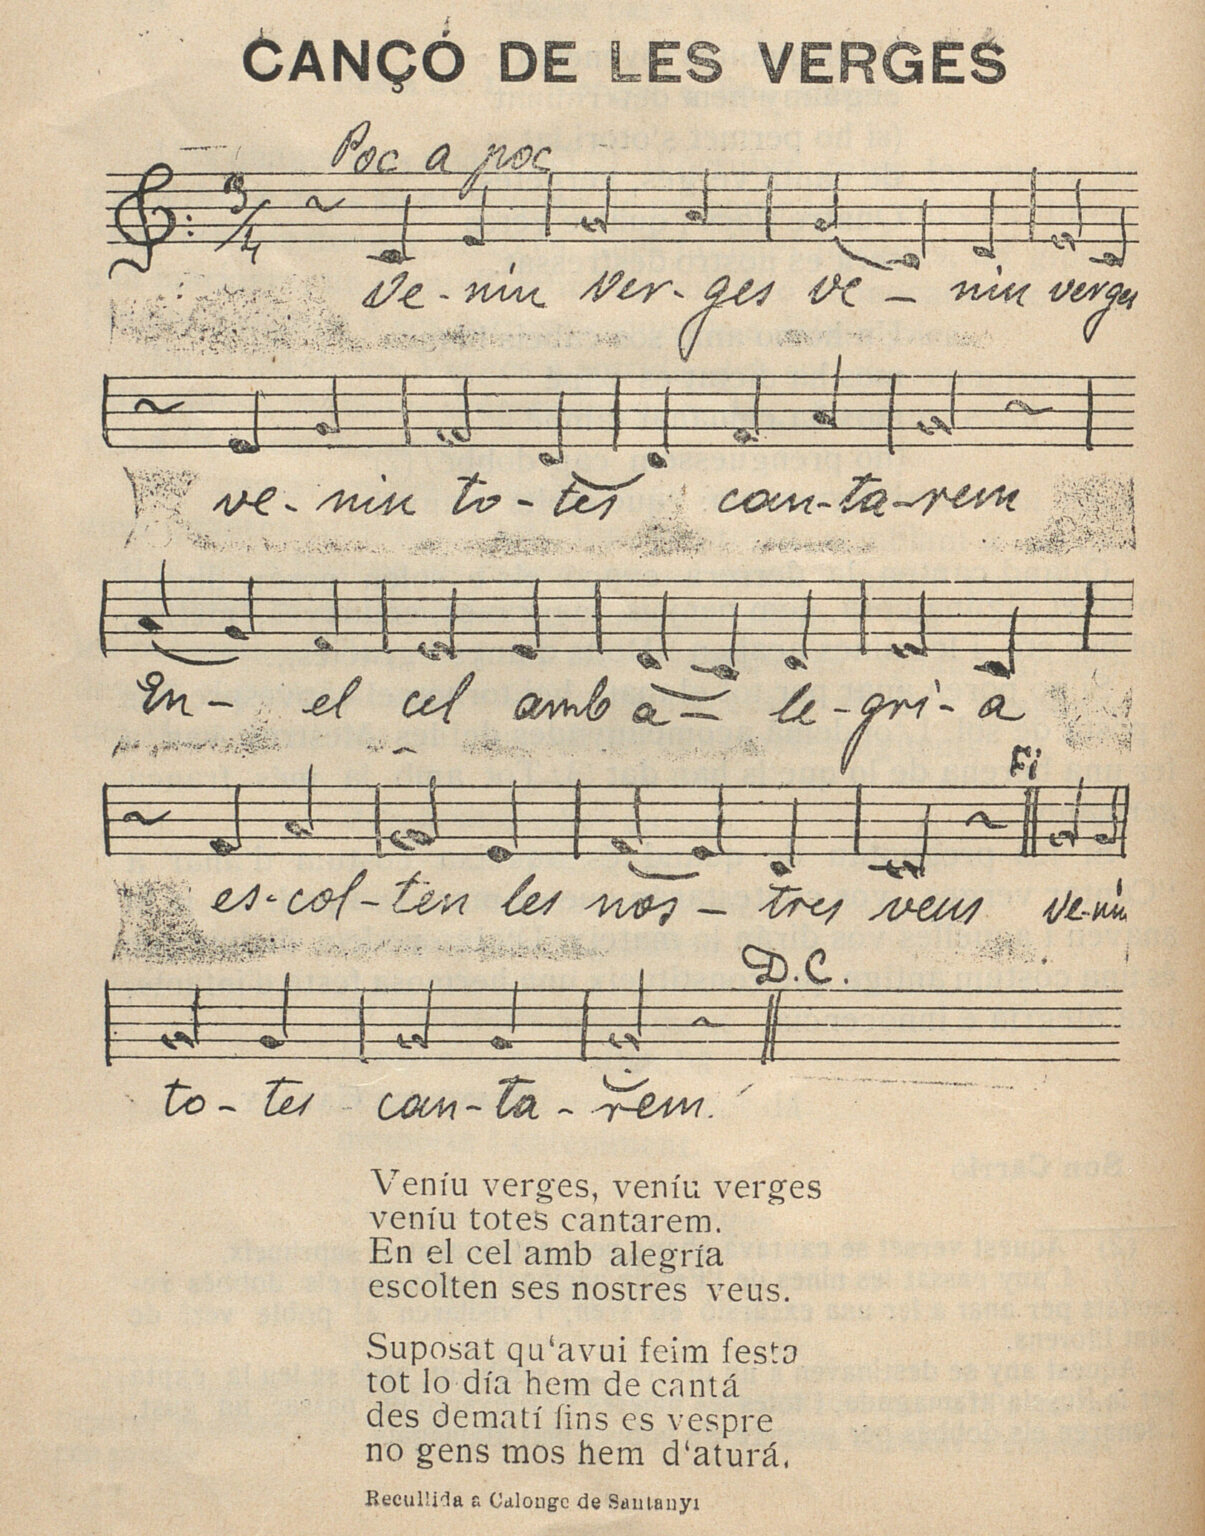 CANÇÓ DE LES VERGES
Poc a poc
3/4
Ve-níu Ver-ges ve - níu verges
ve-niu to-tes can-ta-rem
En- el cel amb a- le-grí-a
Fi
es-col-ten les nos- tres veus ve-níu
D.C.
to-tes can-ta-rem.
Veníu verges, veníu verges
veníu totes cantarem.
En el cel amb alegría
escolten ses nostres veus.
Suposat qu‘avui feim festa
tot lo día hem de cantá
des dematí fins es vespre
no gens mos hem d‘aturá.
Recullida a Calonge de Santanyi